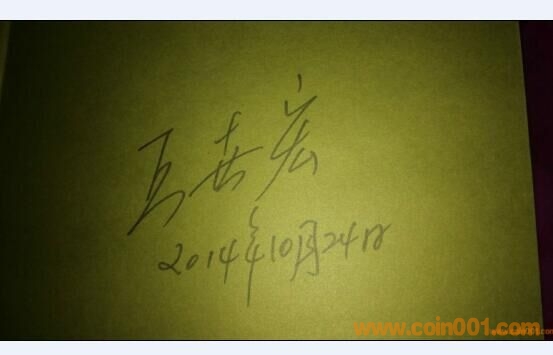 宏
2014年10月24日
www.coin001.com